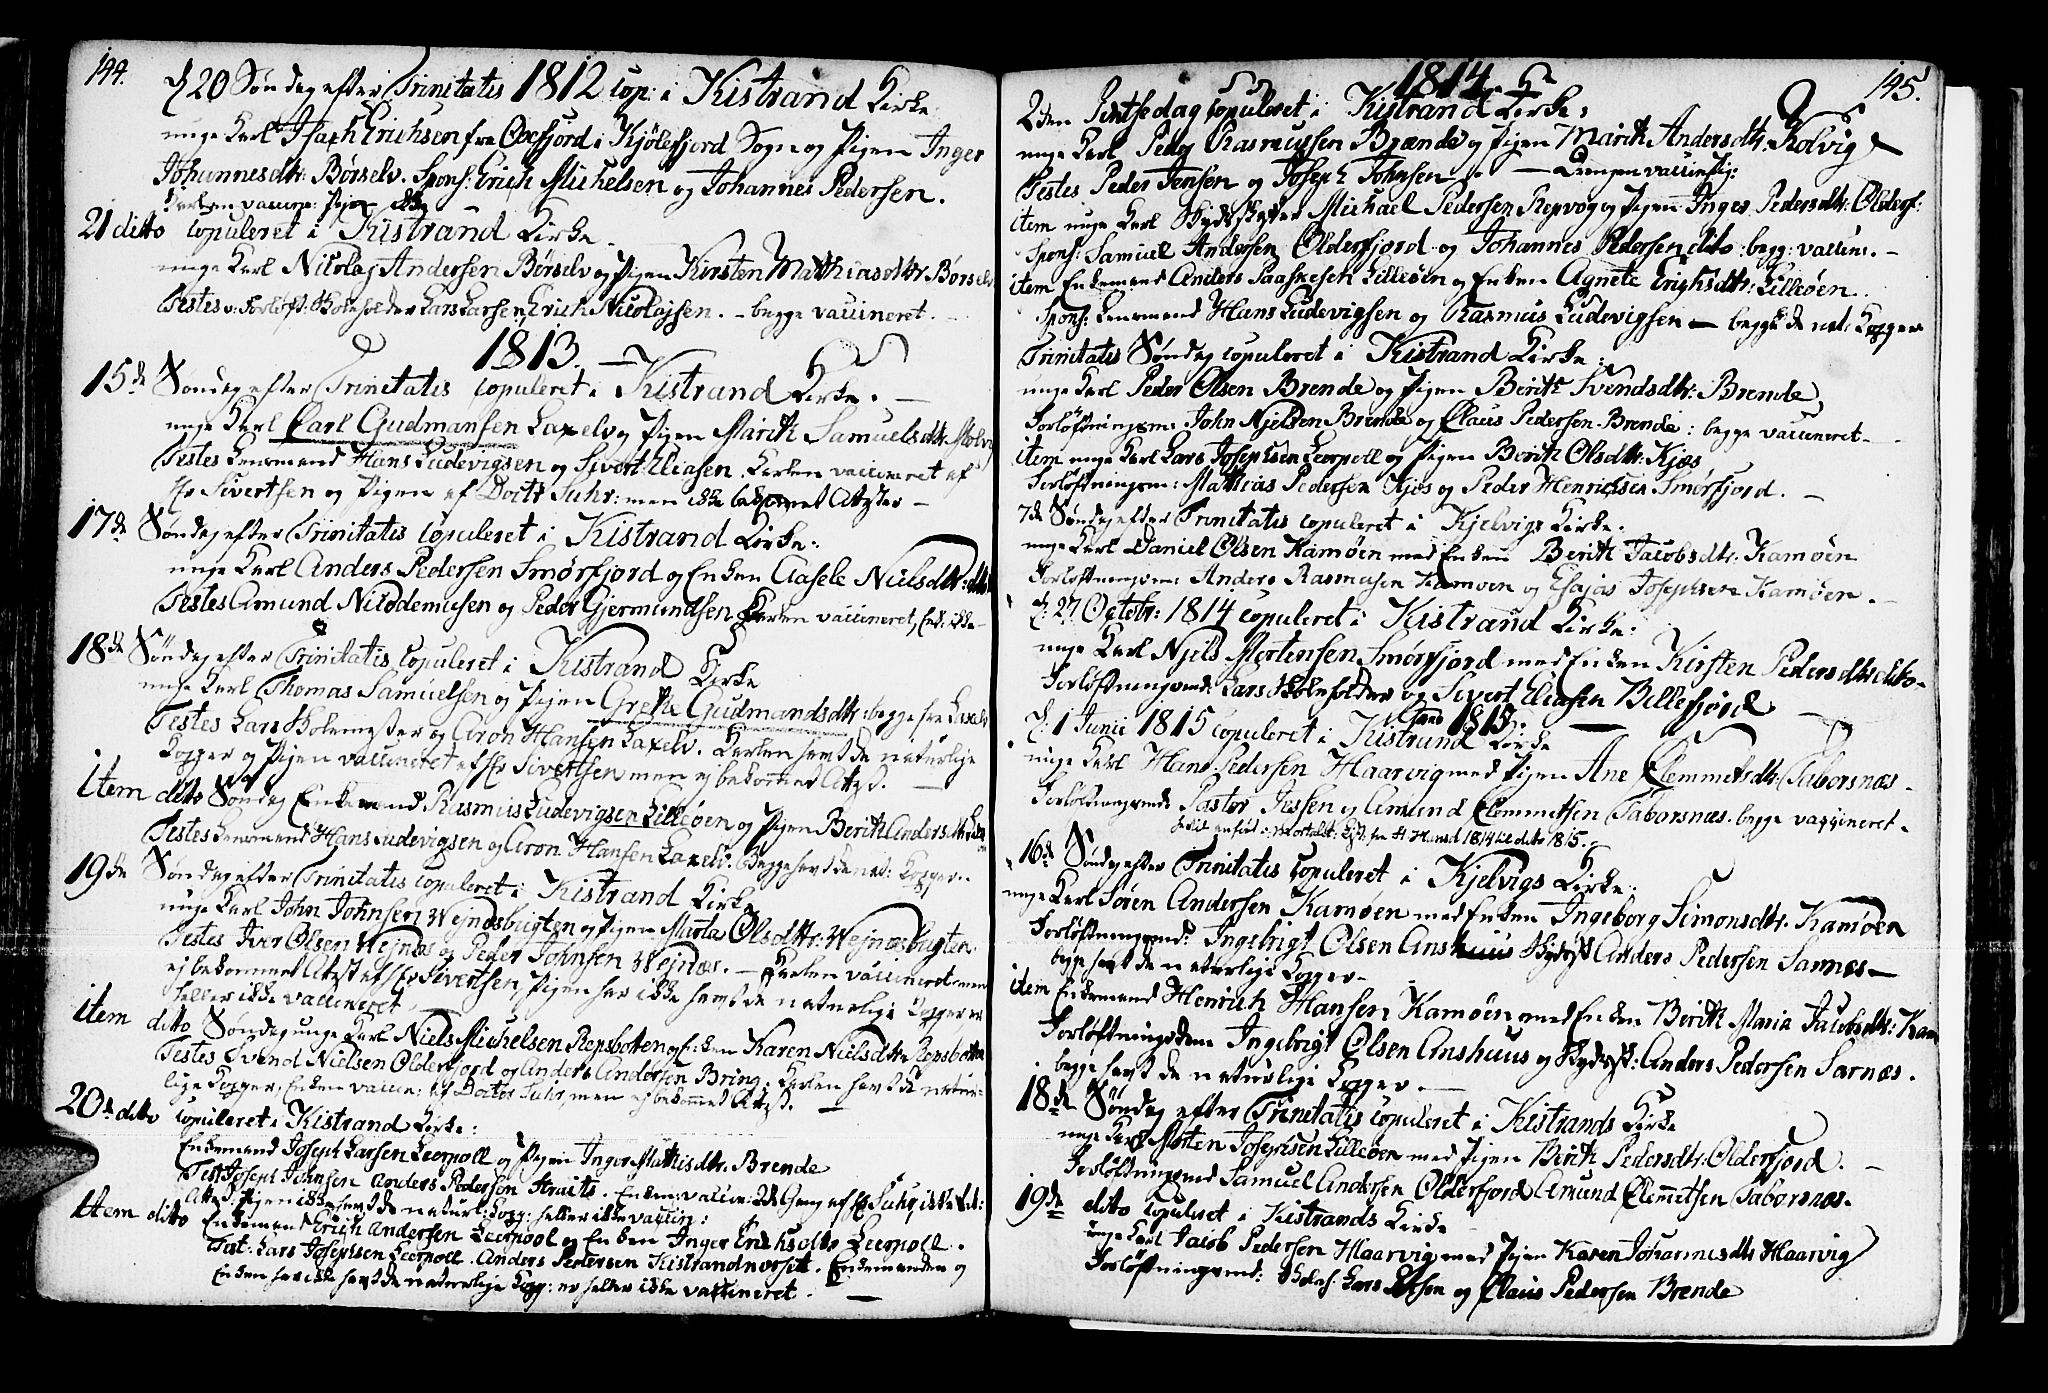 144.
d 20 Søndag efter Trinitatis 1812 cop: i Kistrand Kirke
unge Karl Isach Erichsen fra Oxefjord i Kjöllefjord Sogn og Pigen Inger
Johannesdtr: Börselv. Spons: Erich Michelsen og Johannes Pedersen.
Karlen vaccine: Pigen ikke
21 ditto copuleret i Kistrand Kirke
unge Karl Nicolaj Andersen Börselv og Pigen Kirsten Mathiasdtr: Börselv
Testes v: Forløft: Skoleholder Lars Larsen, Erich Nicolajsen. - begge vaccineret.
1813.
15de Søndag efter Trinitatis copuleret i Kistrand Kirke.
unge Karl Carl Gudmansen Laxelv og Pigen Marith Samuelsdtr:
Testes Lensmand Hans Ludevigsen og Sivert Eliasen. Karlen vaccineret af
Hr Sivertsen og Pigen af Doctr Suhr: men ikke bekommet Attester -
17de Søndag efter Trinitatis copuleret i Kistrand Kirke:
unge Karl Anders Pedersen Smörfjord og Enken Aasele Nielsdtr: dito
Testes Amund Nicodemusen og Peder Gjermundsen Karlen vaccineret, Enk: ikke
18de Söndag efter Trinitatis copuleret i Kistrand Kirke
unge Karl Thomas Samuelsen og Pigen Grethe Gudmandsdtr: begge fra Laxelv
Testes Lars Skolemester og Aron Hansen Laxelv. Karlen havt de naturlige
Kopper og Pigen vaccineret af Hr Sivertsen men ej bekommet Attest.
item dito Søndag Enkemand Rasmus Ludevigsen Lilleöen og Pigen Berith Andersdtr:
Testes Lensmand Hans Ludevigsen og Aron Hansen Laxelv. Begge havt de nat: Kopper.
19de Søndag efter Trinitatis copuleret i Kistrand Kirke
unge Karl John Johnsen Wejnæsbugten og Pigen Marta Olsdtr: Wejnæsbugten
Testes Iver Olsen Wejnæs og Peder Johnsen Wejnæs. - Karlen vaccineret men
ej bekommet Attest af Hr Sivertsen, Pigen har ikke havt de naturlige Kopper, er
heller ikke vaccineret.
item ditto Søndag unge Karl Niels Michelsen Repsbotten og Enken Karen Nielsdtr Repsbotten
Testes Svend Nielsen Olderfjord og Anders Andersen Bring: Karlen havt de natur-
lige Kopper, Enken vaccin: af Doctor Suhr, men ej bekommet Attest.
20de ditto copuleret i Kistrand Kirke:
Enkemand Joseph Larsen Leerpoll og Pigen Inger Mathisdtr: Brende
Test: Joseph Johnsen Anders Pedersen Straits. Enkem: vaccin: 2de Gang af Hr Suhr, ikke
Attest: Pigen ikke havt de naturl: Kopp: heller ikke vaccin:
Item dito Enkemand Erich Andersen Leerpool og Enken Inger Erichsdtr Leerpoll.
Test: Lars Josephsen Leerpoll. Anders Pedersen Kistrandnæset. Enkemanden og
Enken har ikke havt de naturlige Kopp: er heller ikke vaccineret.
145.
1814.
2den Pintsedag copuleret i Kistrand Kirke:
unge Karl Peder Rasmussen Brænde og Pigen Marith Andersdtr: Kolvig
Testes Peder Jensen og Joseph Johnsen - Drengen vaccin Pig:
item unge Karl Michael Pedersen Repvog og Pigen Inger Pedersdtr: Olderf:
Spons: Samuel Andersen Olderfjord og Johannes Pedersen dito: begg: vaccine. -
item Enkemand Anders Paaskesen Lilleöen og Enken Agnete Erichsdtr: Lilleöen.
Spons: Lensmand Hans Ludevigsen og Rasmus Ludevigsen - begge de nat: Kopper
Trinitatis Søndag copuleret i Kistrand Kirke:
unge Karl Peder Olsen Brende og Pigen Berith Svendsdtr: Brende
Forløftningsm: John Njelsen Brende og Claus Pedersen Brende: begge vaccineret -
item unge Karl Lars Josephsen Leerpoll og Pigen Berith Olsdtr: Kjæs
Forløftningsm: Mathias Pedersen Kjæs og Peder Henrichsen Smörfjord. -
7de Søndag efter Trinitatis copuleret i Kjelvigs Kirke.
unge Karl Daniel Olsen Kamöen med Enken Berith Jacobsdtr: Kamöen
Forløftningsm: Anders Rasmusen Kamoen og Esajas Josephsen Kamöen.
d: 27 Octobr: 1814 copuleret i Kistrand Kirke:
unge Karl Njels Mortensen Smörfjord med Enken Kirsten Pedersdtr dito.
Forløftningsmd: Lars Skoleholder og Sivert Eliasen Billefjord
1815.
d: 1 Junii 1815 copuleret i Kistrand Kirke
unge Karl Hans Pedersen Haarvig med Pigen Ane Clemmetsdtr: Taborsnæs.
Forløftningsmd: Pastor Jessen og Amund Clemmetsen Taborsnæs. begge vaccineret.
hid anført i Mortalit: List: fra 1814 til dito 1815.
16de Søndag efter Trinitatis copuleret i Kjelvigs Kirke:
unge Karl Sören Andersen Kamöen med Enken Ingeborg Simonsdtr: Kamöen
Forløftningsmd: Ingebrigt Olsen Anshuus Anders Pedersen Sarnæs -
begge havt de naturlige Kopper -
item Enkemand Henrich Hansen Kamöen med Enken Berith Maria Jacobsdtr: Kam
Forløftningsdem Ingebrigt Olsen Anshuus og Anders Pedersen Sarnæs.
begge havt de naturlige Kopper.
18de Søndag efter Trinitatis copuleret i Kistrands Kirke
unge Karl Morten Josephsen Lilleöen med Pigen Berith Pedersdtr: Olderfjord. -
Forløftningsmd Samuel Andersen Olderfjord Amund Clemetsen Taborsnæs.
19de dito copuleret i Kistrands Kirke
unge Karl Jacob Pedersen Haarvig med Pigen Karen Johannesdtr Haarvig
Forløftningsmd: Skoleh: Lars Larsen og Claus Pedersen Brende